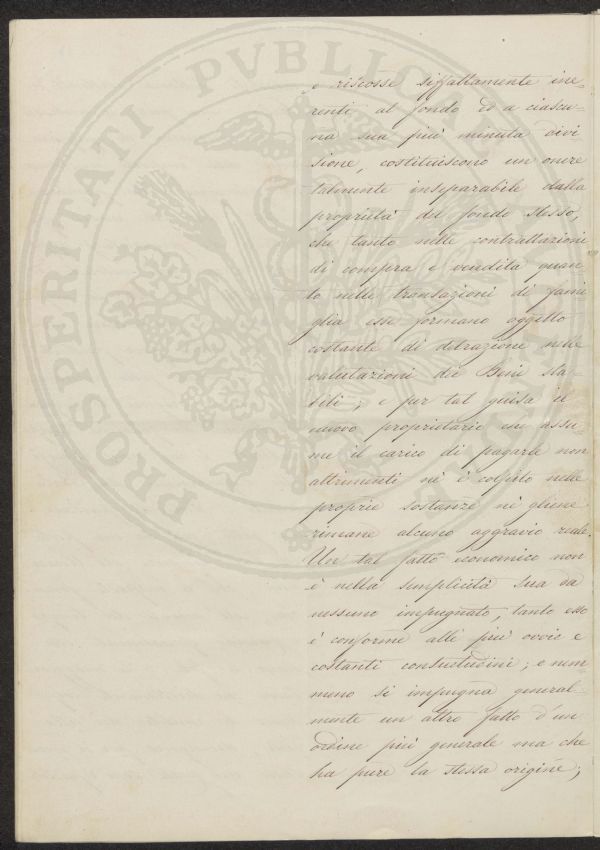 PROSPERITATI PVBLICAE
e riscosse siffattamente ine-
renti al fondo ed a ciascu-
na sua più minuta divi
sione, costituiscono un onere
talmente inseparabile dalla
proprietà del fondo stesso,
che tanto nelle contrattazioni
di compra e vendita quan
to nelle transazioni di fami
glia esse formano oggetto
costante di detrazione nelle
valutazioni dei Beni sta-
bili; e per tal guisa il
nuovo proprietario che assu-
me il carico di pagarle non
altrimenti ne è colpito nelle
proprie sostanze nè gliene
rimane alcuno aggravio reale.
Un tal fatto economico non
è nella semplicità sua da
nessuno impugnato, tanto esso
è conforme alle più ovvie e
costanti consuetudini; e nem
meno si impugna general-
mente un altro fatto d'un
ordine più generale ma che
ha pure la stessa origine;